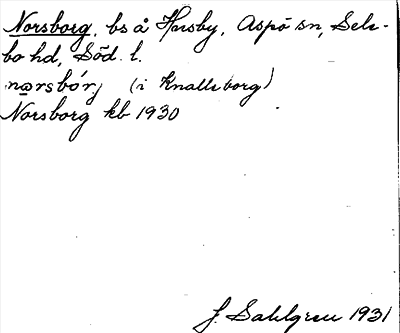 Norsborg, bs å Husby, Aspö sn, Sele-
bo hd, Söd. l.
norsbórj (i Knallsborg)
Norsborg kb 1930
J. Sahlgren 1931